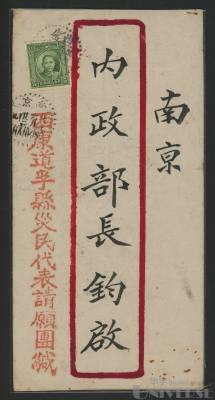 南京
內政部長鈞啟
西康道孚縣災民代表請願團緘